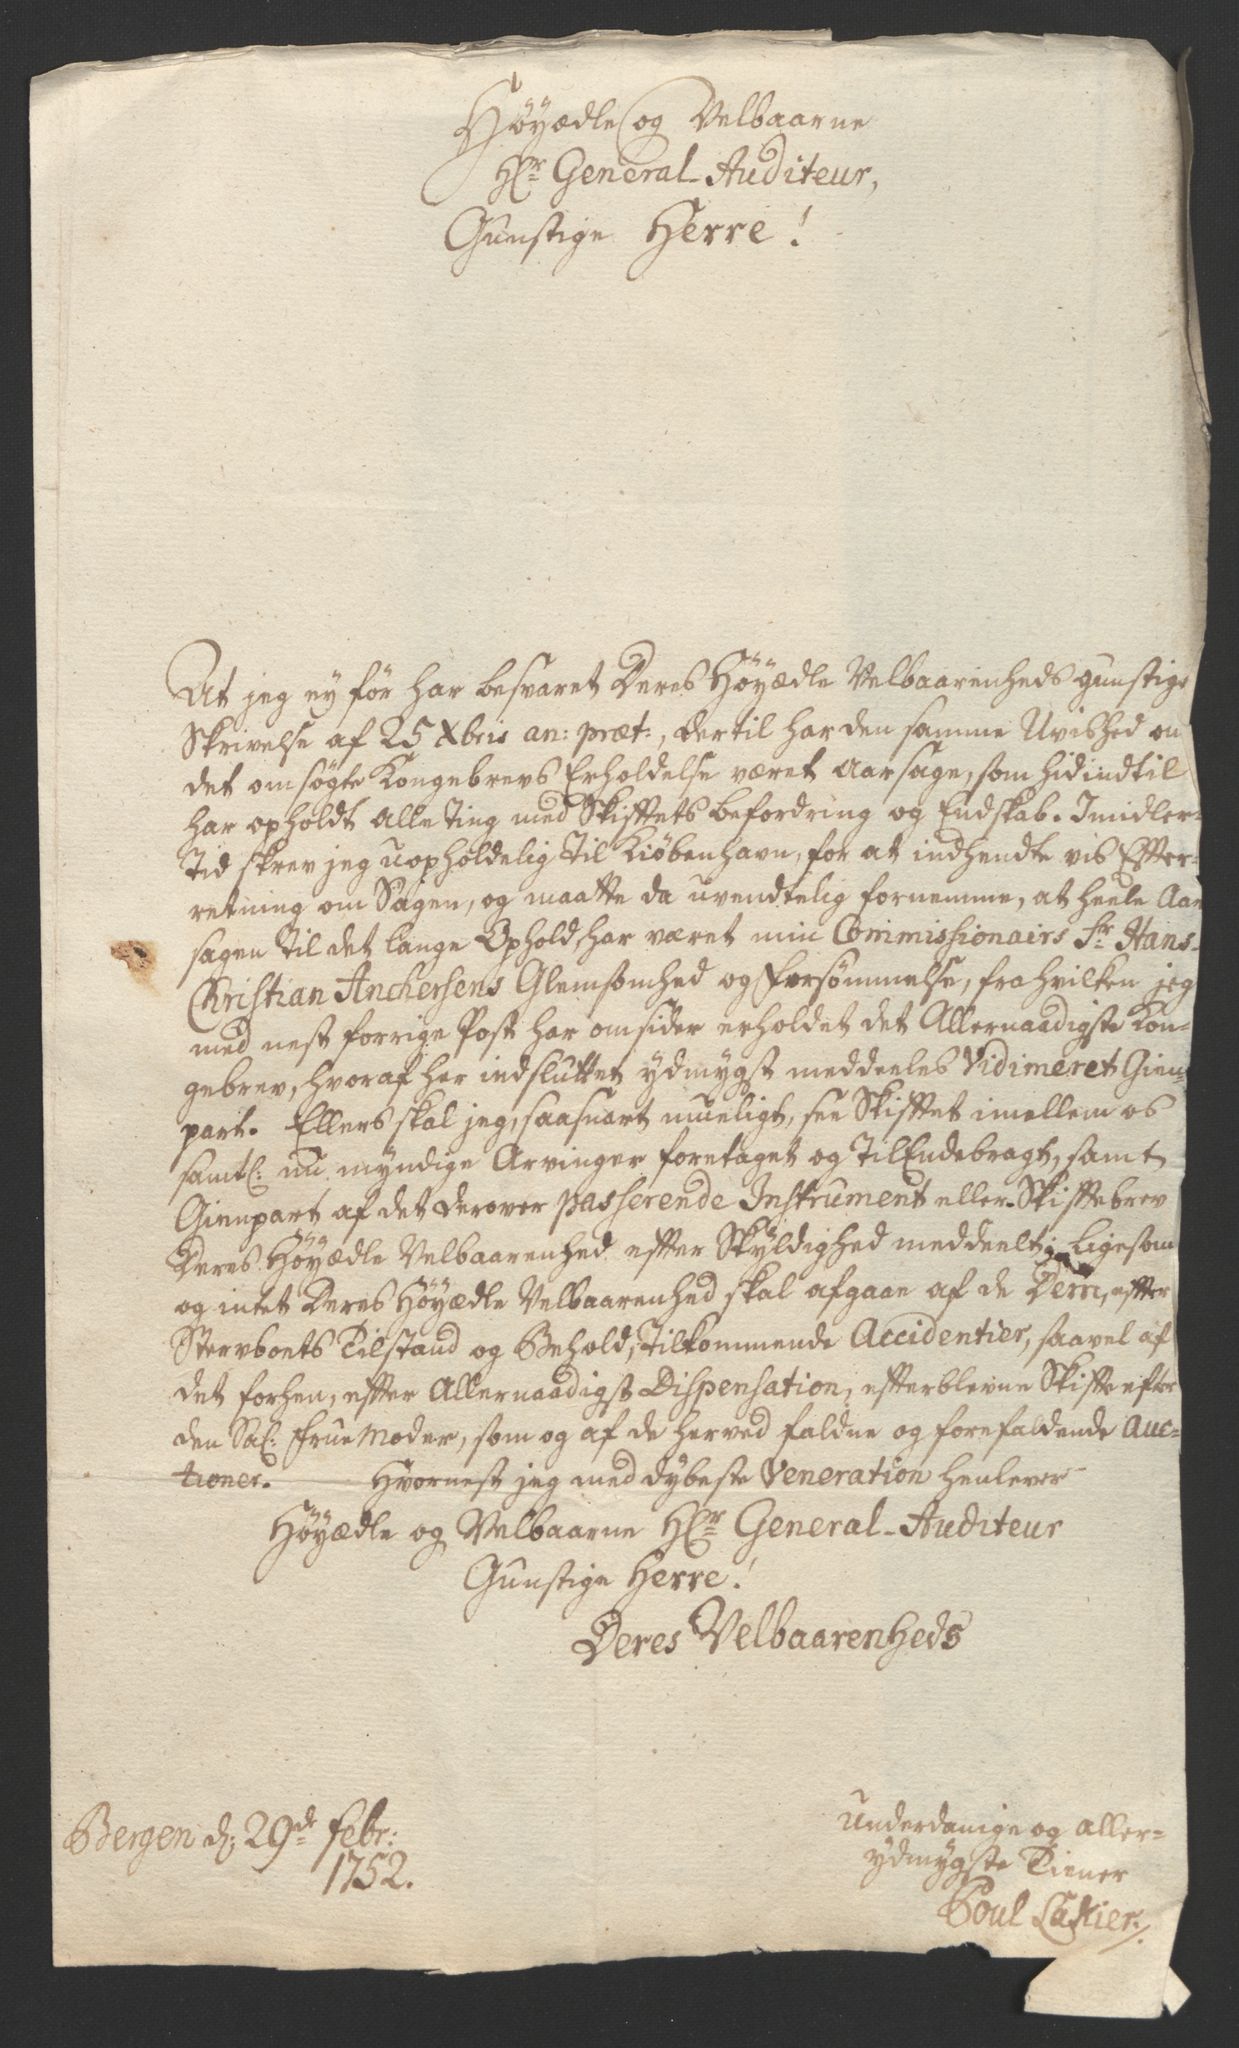 Høyædle og Velbaarne
Hr General-Auditeur,
Gunstige Herre!
At jeg ey før har besvaret Deres Høyædle Velbaarenheds gunstige
Skrivelse af 25 Xbris an: præt:, dertil har den samme Uvished om
det omsøgte Kongebrevs Erholdelse været Aarsage, som hidindtil
har opholdt alle Ting med Skifftets Befordring og Endskab. Imidler-
Tid skrev jeg uopholdelig til Kiøbenhavn, for at indhendte vis Effter-
retning om Sagen, og maatte da uvendtelig fornemme, at heele Aar
sagen til det lange Ophold, har været min Commissionairs Sr Hans
Christian Anchersens Glemsomhed og Forsømmelse, fra hvilken jeg
med nest forrige Post har omsider erholdet det Allernaadigste Kon-
gebrev, hvoraf her indsluttet ydmygst meddeeles Vidimeret Gien-
part. Ellers skal jeg, saasnart mueligt, see Skifftet imellem os
samtl: nu myndige Arvinger foretaget og TilEndebragt, samt
Gienpart af det derover passerende Instrument eller Skifftebrev
Deres Høyædle Velbaarenhed effter Skyldighed meddeelt; Ligesom
og intet Deres Høyædle Velbaarenhed skal afgaae af de Dem, effter
Stervboets Tilstand og Behold, tilkommende Accidentier, saavel af
det forhen, effter Allernaadigst Dispensation, efterblevne Skiffte efter
den Sal: Frue Moder, som og af de herved faldne og forefaldende Auc-
tioner. Hvornest jeg med dybeste Veneration henlever
Høyædle og Velbaarne Hr General-Auditeur
Gunstige Herre!
Deres Velbaarenheds
Bergen d: 29de Febr:
1752.
underdanige og aller-
ydmygste Tiener
Poul